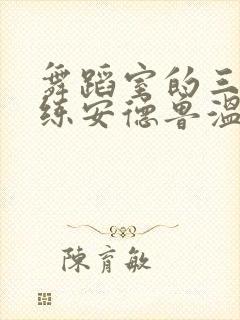 舞蹈室的三
练安德鲁温
陳育敏